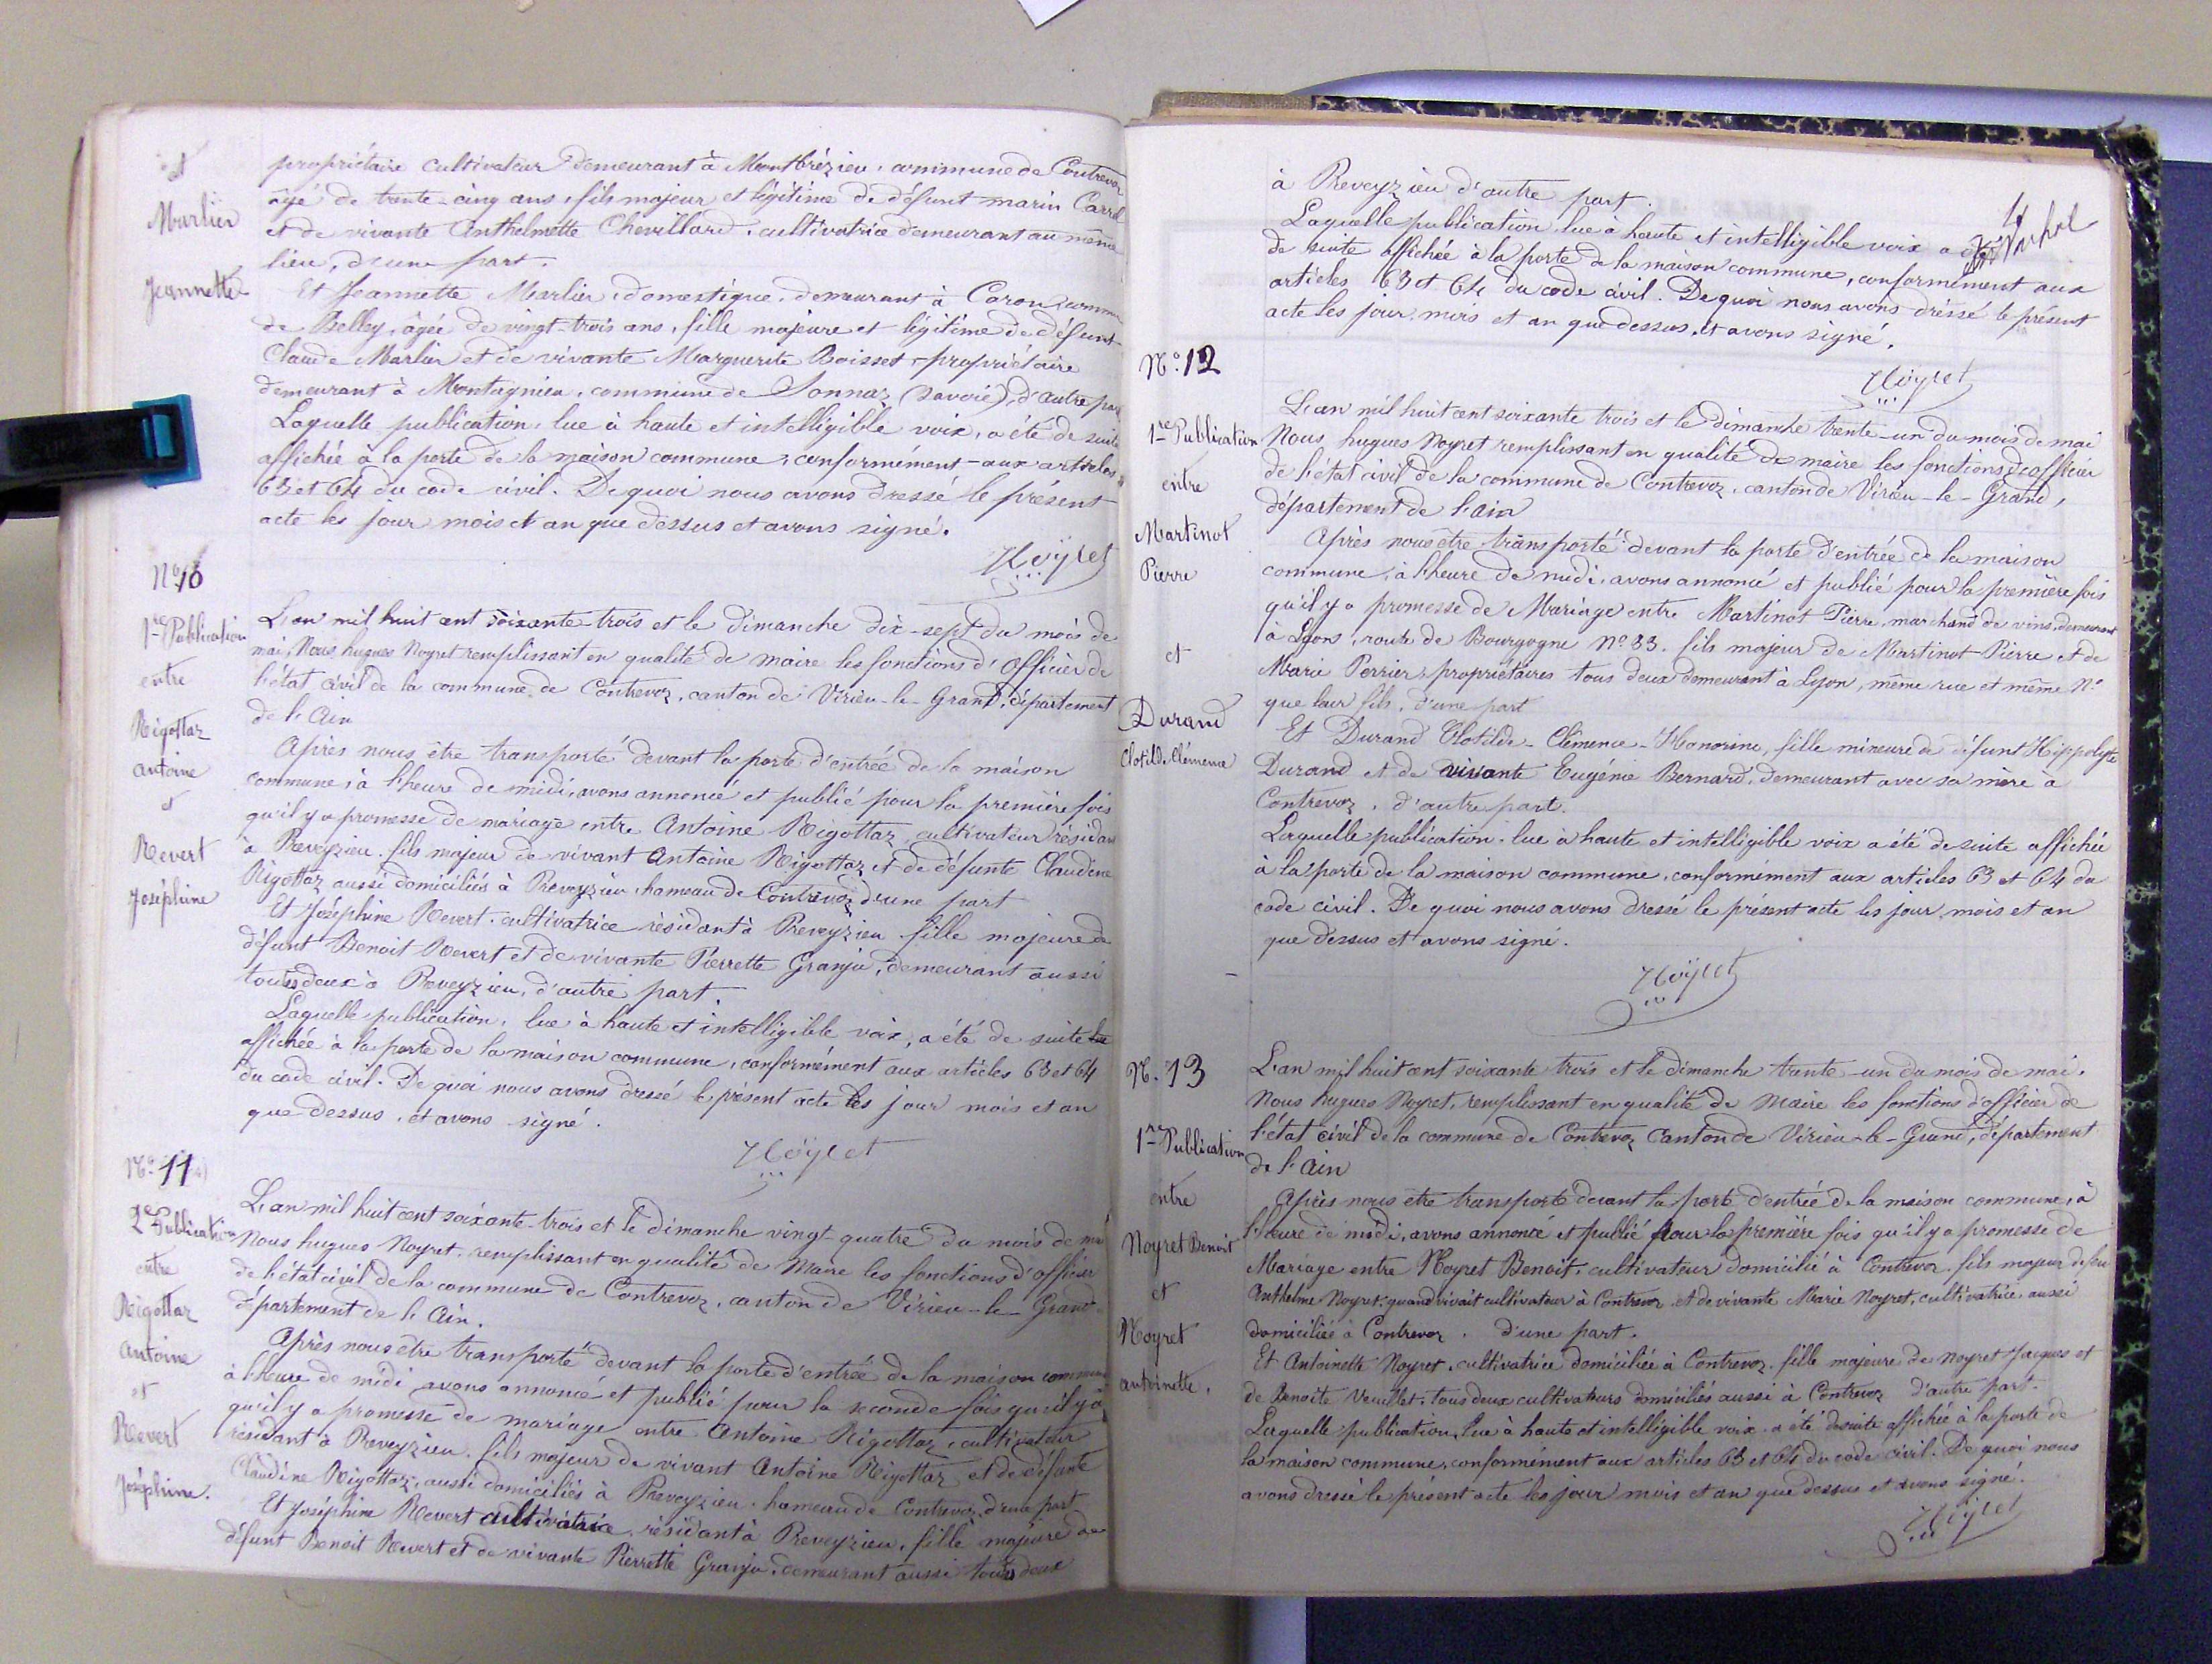 et
Marlier
Jeannette
propriétaire cultivateur demeurant à Montbrézieu, commune de Contrevoz
âgé de trente-cinq ans, fils majeur et légitime de défunt marin Carrel
et de vivante Anthelmette Chevillard, cultivatrice demeurant au même
lieu, d'une part.
Et Jeannette Marlier, domestique, demeurant à Coron, commune
de Belley, âgée de vingt-trois ans, fille majeure et légitime de défunt
Claude Marlier et de vivante Marguerite Boisset, propriétaire
demeurant à Montagnieu, commune de Sonnaz (Savoie), d'autre part
Laquelle publication, lue à haute et intelligible voix, a été de suite
affichée à la porte de la maison commune, conformément aux articles
63 et 64 du code civil. De quoi nous avons dressé le présent
acte les jour mois et an que dessus et avons signé.
Noyret
No 10
1re Publication
entre
Rigottaz
antoine
et
Revert
Joséphine
L'an mil huit cent soixante-trois et le dimanche dix-sept du mois de
mai, Nous hugues Noyret remplissant en qualité de maire les fonctions d'Officier de
l'état civil de la commune de Contrevoz, canton de Virieu-le-Grand, département
de l'Ain
Après nous être transporté devant la porte d'entrée de la maison
commune, à l'heure de midi, avons annoncé et publié pour la première fois
qu'il y a promesse de mariage entre Antoine Rigottaz, cultivateur résidant
à Preveyzieu, fils majeur de vivant Antoine Rigottaz et de défunte Claudine
Rigottaz aussi domiciliés à Preveyzieu, hameau de Contrevoz d'une part
Et Joséphine Revert, cultivatrice résidant à Preveyzieu fille majeure de
défunt Benoit Revert et de vivante Pierrette Granju, demeurant aussi
tous deux à Preveyzieu, d'autre part.
Laquelle publication, lue à haute et intelligible voix, a été de suite lue
affichée à la porte de la maison commune, conformément aux articles 63 et 64
du code civil. De quoi nous avons dressé le présent acte les jour mois et an
que dessus, et avons signé.
Noyret
No 11
2e Publication
entre
Rigottaz
Antoine
et
Revert
Joséphine.
L'an mil huit cent soixante-trois et le dimanche vingt-quatre du mois de mai
Nous hugues Noyret, remplissant en qualité de Maire les fonctions d'officier
de l'état civil de la commune de Contrevoz, canton de Virieu-le-Grand
département de l'Ain.
Après nous être transporté devant la porte d'entrée de la maison commune
à l'heure de midi avons annoncé et publié pour la seconde fois qu'il y a
qu'il y a promesse de mariage entre Antoine Rigottaz, cultivateur
résidant à Preveyzieu, fils majeur de vivant Antoine Rigottaz et de défunte
Claudine Rigottaz, aussi domiciliés à Preveyzieu, hameau de Contrevoz, d'une part
Et Joséphine Revert cultivatrice, résidant à Preveyzieu, fille majeure de
défunt Benoit Revert et de vivante Pierrette Granju, demeurant aussi tous deux
4
à Preveyzieu d'autre part.
Laquelle publication lue à haute et intelligible voix a été
de suite affichée à la porte de la maison commune, conformément aux
articles 63 et 64 du code civil. De quoi nous avons dressé le présent
acte les jour, mois et an que dessus, et avons signé.
Noyret
No. 12
1re Publication
entre
Martinot
Pierre
et
Durand
Clotilde Clémence
L'an mil huit cent soixante trois et le dimanche trente-un du mois de mai
Nous, hugues Noyret remplissant en qualité de maire les fonctions d'officier
de l'état civil de la commune de Contrevoz, canton de Virieu-le-Grand,
département de l'ain
Après nous être transporté devant la porte d'entrée de la maison
commune, à l'heure de midi, avons annoncé et publié pour la première fois
qu'il y a promesse de Mariage entre Martinot Pierre, marchand de vins, demeurant
à Lyon, route de Bourgogne No 33. fils majeur de Martinot Pierre et de
Marie Perrier, propriétaires tous deux demeurant à Lyon, même rue et même No
que leur fils, d'une part
Et Durand Clotilde-Clémence-Honorine, fille mineure de défunt Hippolyte
Durand et de vivante Eugénie Bernard, demeurant avec sa mère à
Contrevoz, d'autre part.
Laquelle publication, lue à haute et intelligible voix a été de suite affichée
à la porte de la maison commune, conformément aux articles 63 et 64 du
code civil. De quoi nous avons dressé le présent acte les jour, mois et an
que dessus et avons signé.
Noyret
N. 13
1re Publication
entre
Noyret Benoit
et
Noyret
antoinette.
L'an mil huit cent soixante trois et le dimanche trente-un du mois de mai.
Nous hugues Noyret, remplissant en qualité de Maire les fonctions d'officier de
l'état civil de la commune de Contrevoz canton de Virieu-le-Grand, département
de l'Ain
Après nous être transporté devant la porte d'entrée de la maison commune, à
l'heure de midi, avons annoncé et publié pour la première fois qu'il y a promesse de
Mariage entre Noyret Benoit, cultivateur domicilié à Contrevoz, fils majeur de feu
Anthelme Noyret, quand vivait cultivateur à Contrevoz et de vivante Marie Noyret, cultivatrice, aussi
domiciliée à Contrevoz. d'une part.
Et Antoinette Noyret, cultivatrice domiciliée à Contrevoz, fille majeure de Noyret Jacques et
de Benoite Veuillet, tous deux cultivateurs domiciliés aussi à Contrevoz d'autre part.
Laquelle publication, lue à haute et intelligible voix a été de suite affichée à la porte de
la maison commune, conformément aux articles 63 et 64 du code civil. De quoi nous
avons dressé le présent acte les jour mois et an que dessus et avons signé.
Noyret